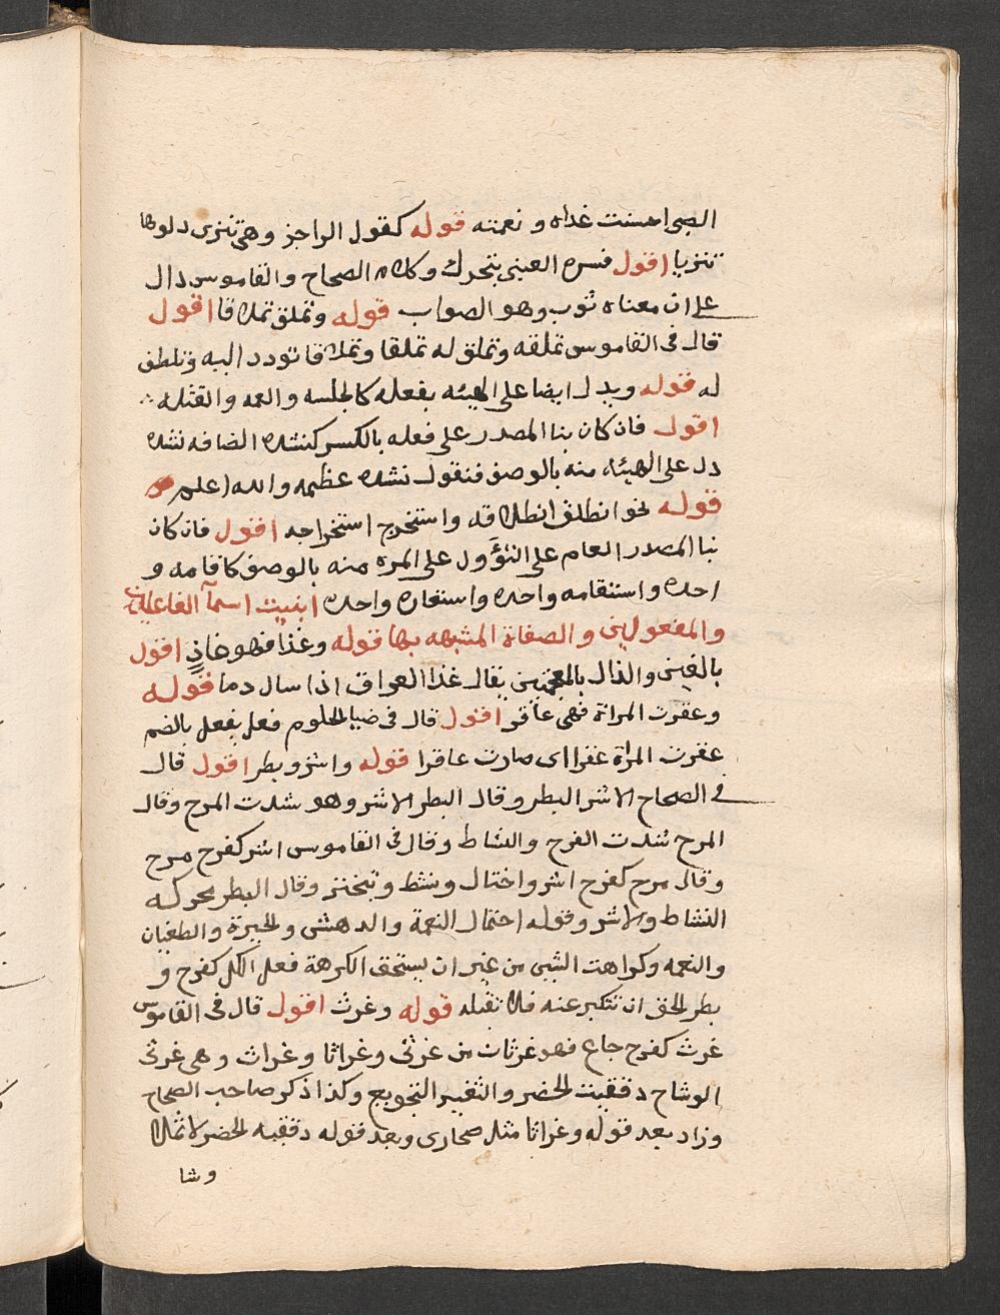 الصبي احسنت غداه ونعمته قوله كقول الراجز وهي تنزى دلوها
تنزيا اقول فسره العيني بتحرك وكلام الصحاح والقاموس دال
على ان معناه توب وهو الصواب قوله وتملق تملاقا اقول
قال فى القاموس تملقه وتملق له تملقا وتملاقا تودد اليه وتلطف
له قوله ويدل ايضا على الهيئه بفعله كالجلسه والعمه والقتله
اقول فان كان بنا المصدر على فعله بالكسر كنشده الضافه نشده
دل على الهيئه منه بالوصف فنقول نشده عظيمه والله اعلم
قوله نحو انطلق انطلاقه واستخرج استخراجه اقول فان كان
بنا المصدر العام على التؤول على المره منه بالوصف كاقامه و
احده واستقامه واحده واستعاره واحده ابنيت اسمآ الفاعلين
والمفعولين والصفاة المشبهه بها قوله وغذا فهو غاذٍ اقول
بالغين والذال بالمعجمتين يقال غذا العراق اذا سال دما قوله
وعقرت المراة فهي عاقر اقول قال فى ضيا الحلوم فعل يفعل بالضم
عقرت المرأة عقرا اى صارت عاقرا قوله واشر وبطر اقول قال
فى الصحاح الاشر البطر وقال البطر الاشر وهو شدت المرح وقال
المرح شدت الفرح والنشاط وقال فى القاموس اشر كفرح مرح
وقال مرح كفرح اشر واختال ونشط وتبختر وقال البطر محركه
النشاط والاشر وقوله احتمال النعمة والدهش والحيرة والطغيان
والنعمه وكراهت الشي من غير ان يستحق الكرهة فعل الكل كفرح و
بطر الحق ان تتكبر عنه فلا تقبله قوله وغرث اقول قال فى القاموس
غرث كفرح جاع فهو غرثان من غرثى وغراثا وغراث وهي غرثى
الوشاح دقيقت الخصر والتغير التجويع وكذا ذكر صاحب الصحاح
وزاد بعد قوله وغراثا مثل صحارى وبعد قوله دقيقه الخصر لا تملا
وشا